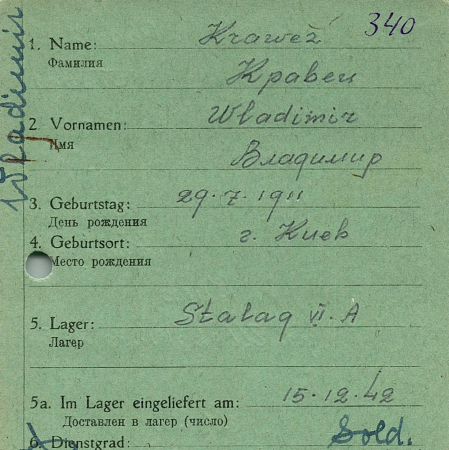 340
Wladimir
1. Name: Krawež
Фамилия Кравец
2. Vornamen: Wladimir
Имя Владимир
3. Geburtstag: 29.7.1911
День рождения
4. Geburtsort: г. Киев
Место рождения
5. Lager: Stalag VI. A
Лагерь
5a. Im Lager eingeliefert am: 15.12.42
Доставлен в лагерь (число)
6. Dienstgrad: Sold.